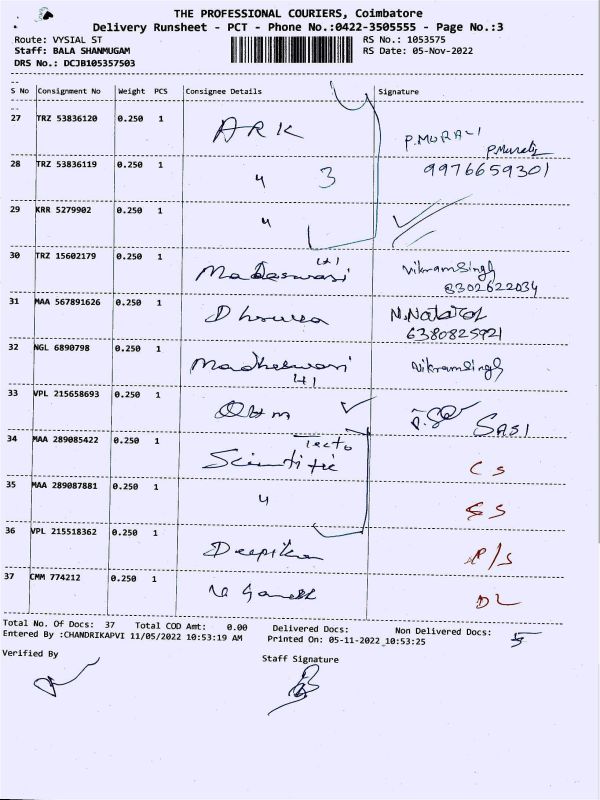 THE PROFESSIONAL COURIERS, Coimbatore
Delivery Runsheet - PCT - Phone No.:0422-3505555 - Page No.:3
Route: VYSIAL ST RS No.: 1053575
Staff: BALA SHANMUGAM RS Date: 05-Nov-2022
DRS No.: DCJB105357503
S No Consignment No Weight PCS Consignee Details Signature
27 TRZ 53836120 0.250 1 ARK P.MURALI
P.Murali
28 TRZ 53836119 0.250 1 " 3 9976659301
29 KRR 5279902 0.250 1 "
30 TRZ 15602179 0.250 1 Vikramsingh
8302622034
31 MAA 567891626 0.250 1 N.Natraj
6380825921
32 NGL 6890798 0.250 1 Madheswari Vikramsingh
33 VPL 215658693 0.250 1 SASI
34 MAA 289085422 0.250 1 Tecto
Scientific CS
35 MAA 289087881 0.250 1 " SS
36 VPL 215518362 0.250 1 Deepika R/S
37 CMM 774212 0.250 1 Ganesh DL
Total No. Of Docs: 37 Total COD Amt: 0.00 Delivered Docs: Non Delivered Docs: 5
Entered By :CHANDRIKAPVI 11/05/2022 10:53:19 AM Printed On: 05-11-2022 10:53:25
Verified By Staff Signature